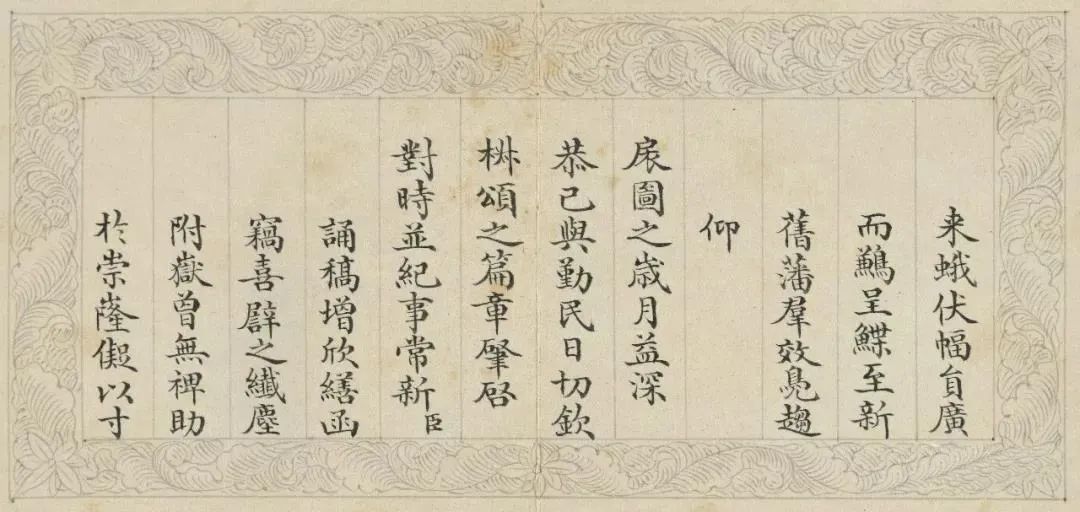 来蛾伏幅㒷廣
而鷫呈鰈至新
舊藩羣效鳧趨
仰
扆圖之歲月益深
恭己與勤民日切欽
椒頌之篇章肇啓
對時並紀事常新臣
誦稿增欣繕函
竊喜辟之纖塵
附嶽曾無裨助
於崇隆儗以寸